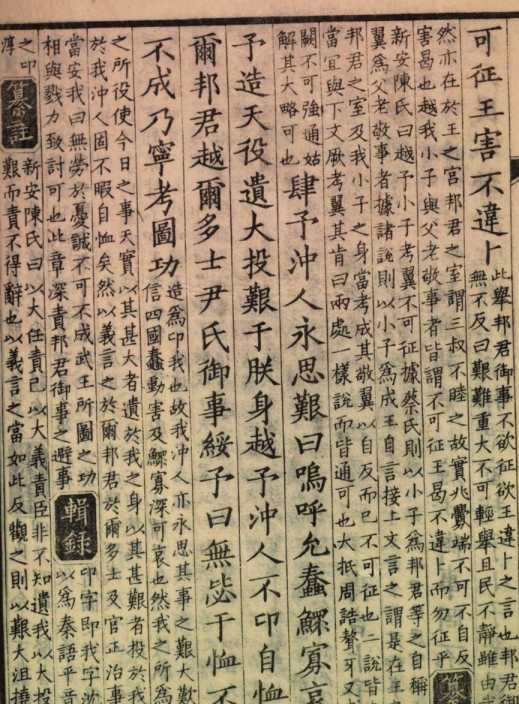 可征王害不違卜
此舉邦君御事不欲征欲王違卜之言也邦君御
無不反曰艱難重大不可輕舉且民不靜雖由
然亦在於王之宮邦君之室謂三叔不睦之故實兆釁端不可不自反
害曷也越我小子與父老敬事者皆謂不可征王曷不違卜而勿征乎
纂
新安陳氏曰越予小子考翼不可征據蔡氏則以小子為邦君等之自稱
翼為父老敬事者據諸說則以小子為成王自言接上文言之謂是在王
邦君之室及我小子之身當考成其敬翼以自反而已不可征也二說皆
當宜與下文厥考翼其肯曰兩處一樣說而皆通可也大抵周誥聱牙又
闕不可強通姑
解其大略可也
肆予沖人永思艱曰嗚呼允蠢鰥寡哀
予造天役遺大投艱于朕身越予沖人不卬自恤
爾邦君越爾多士尹氏御事綏予曰無毖于恤不
不成乃寧考圖功
造為卬我也故我沖人亦永思其事之艱大歎
信四國蠢動害及鰥寡深可哀也然我之所為
之所役使今日之事天實以其甚大者遺於我之身以其甚艱者投於我
於我沖人固不暇自恤矣然以義言之於爾邦君於爾多士及官正治事
當安我曰無勞於憂誠不可不成武王所圖之功
相與戮力致討可也此章深責邦君御事之避事
輯錄
卬字即我字沈
以為秦語平音
之卬
淳
纂註
新安陳氏曰以大任責己以大義責臣非不知遺我以大投
艱而責不得辭也以義言之當如此反觀之則以艱大沮撓